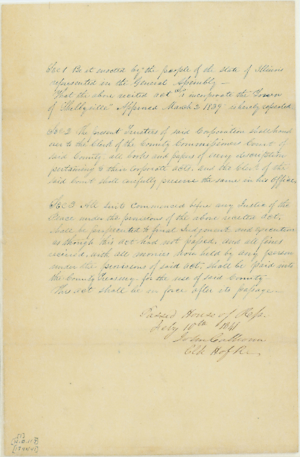 Sec 1 Be it enacted by the people of the State of Illinois
represented in the General Assembly—
That the above recited act to incorporate the Town
of Shelbyville Approved March 2. 1839 is hereby repealed.
Sec 2 The present Trustees of said Corporation shall hand
over to the Clerk of the County Commissioners Court of
said County, all books and papers of every description
pertaining to their corporate acts, and the Clerk of the
said Court shall carefully preserve the same in his office.
Sec 3 All suits Commenced before any Justice of the
Peace under the provisions of the above recited act,
shall be prosecuted to final Judgement, and execution
as though this act had not passed, and all fines
received, with all monies now held by any person
under the provisions of said act, shall be paid into
the County Treasury for the use of said County.
This act shall be in force after its passage.
Passed House of Reps.
Feby 10th 1841
John Calhoun
Clk H of R.